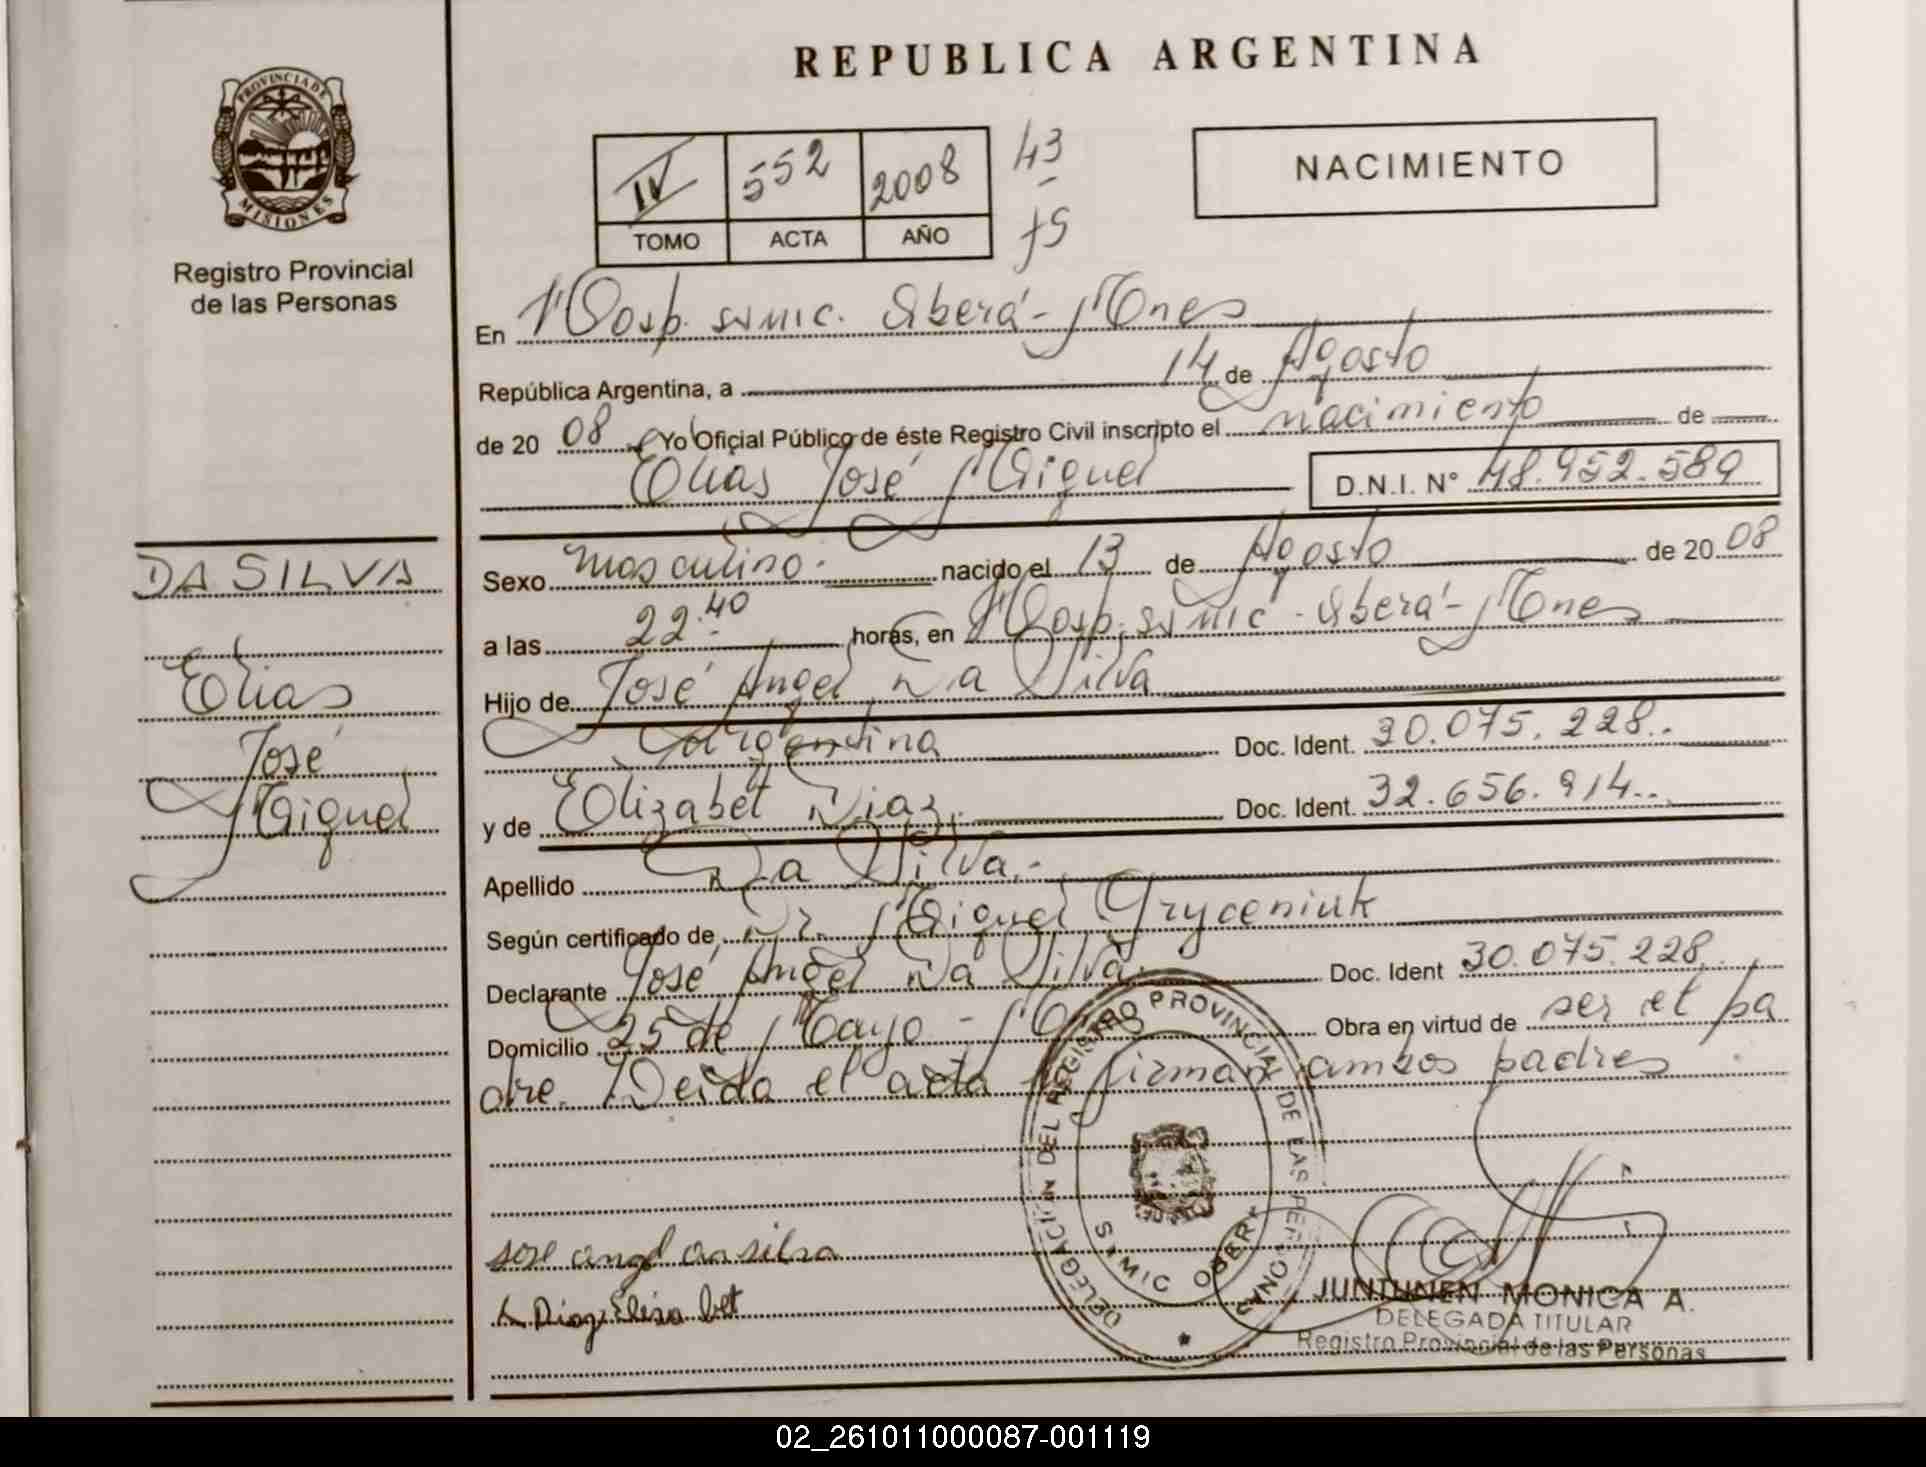 REPUBLICA ARGENTINA
PROVINCIA DE
MISIONES
Registro Provincial
de las Personas
IV 552 2008
TOMO ACTA AÑO
43
75
NACIMIENTO
En Hosp. samic. Oberá - Mnes
República Argentina, a 14 de Agosto
de 2008. Yo Oficial Público de éste Registro Civil inscripto el nacimiento de
Elias José Miguel D.N.I. N° 48.952.589
Sexo masculino. nacido el 13 de Agosto de 2008
a las 22:40 horas, en Hosp. samic - Oberá - Mnes
Hijo de José Angel Da Silva
Argentina Doc. Ident. 30.075.228..
y de Elizabet Diaz. Doc. Ident. 32.656.914..
Apellido Da Silva.-
Según certificado de Dr. Miguel Gryceniuk
Declarante José Angel Da Silva. Doc. Ident 30.075.228
Domicilio 25 de Mayo - Obra en virtud de ser el pa
dre. Leida el acta firman ambos padres
DA SILVA
Elias
José
Miguel
jose angel da silva
Diaz Elisa bet
DELEGACION DEL REGISTRO PROVINCIAL DE LAS PERSONAS
SAMIC OBERA
JUNTUNEN MONICA A.
DELEGADA TITULAR
Registro Provincial de las Personas
02_261011000087-001119